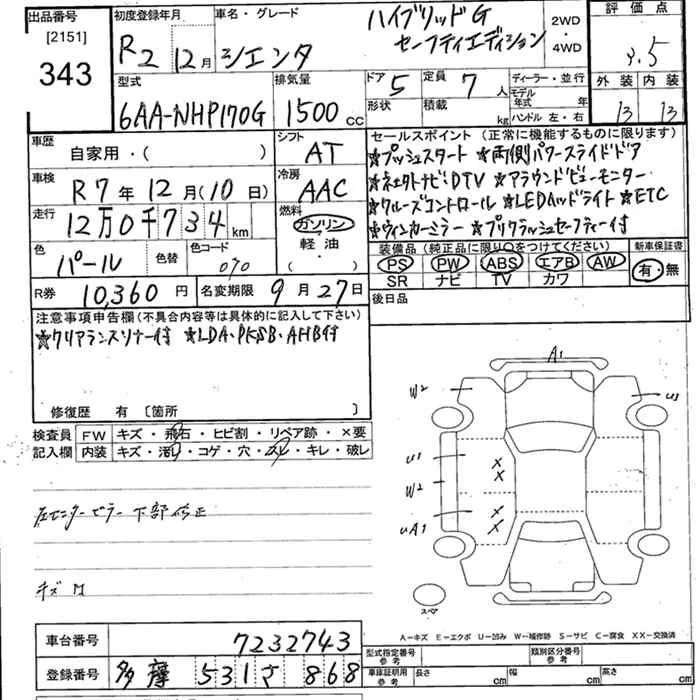 出品番号
[2151]
343
初度登録年月
R2 12月
車名・グレード
シエンタ
ハイブリッドG
セーフティエディション
2WD
・
4WD
評価点
外装 内装
型式
6AA-NHP170G
排気量
1500 CC
ドア 5
形状
定員 7 人
積載 kg
ディーラー・並行
モデル年式 年
ハンドル 左・右
車歴
自家用・( )
シフト
AT
車検
R7年12月(10日)
冷房
AAC
走行
12万0千734 km
燃料
ガソリン
軽油
( )
色
パール
色替
色コード
070
R券 10,360 円
名変期限 9月27日
セールスポイント (正常に機能するものに限ります)
☆プッシュスタート ☆両側パワースライドドア
☆ネエクトナビ・DTV ☆アラウンドビューモニター
☆クルーズコントロール ☆LEDヘッドライト ☆ETC
☆ウィンカーミラー ☆プリクラッシュセーフティー付
装備品 (純正品に限り○をつけてください)
PS PW ABS エアB AW
SR ナビ TV カワ
新車保証書
有・無
後日品
注意事項申告欄(不具合内容等は具体的に記入して下さい)
☆クリアランスソナー付 ☆LDA、PKSB、AHB付
修復歴 有 〔箇所 〕
検査員記入欄
FW キズ・飛石・ヒビ割・リペア跡・×要
内装 キズ・汚れ・コゲ・穴・スレ・キレ・破レ
左センターピラー下部修正
A1
W2
U1
W2
UA1
スペア
A−キズ E−エクボ U−凹み W−補修跡 S−サビ C−腐食 XX−交換済
車台番号 7232743
登録番号 多摩 531 さ 868
型式指定番号
参考
類別区分番号
参考
車庫証明用
参考
長さ cm 幅 cm 高さ cm